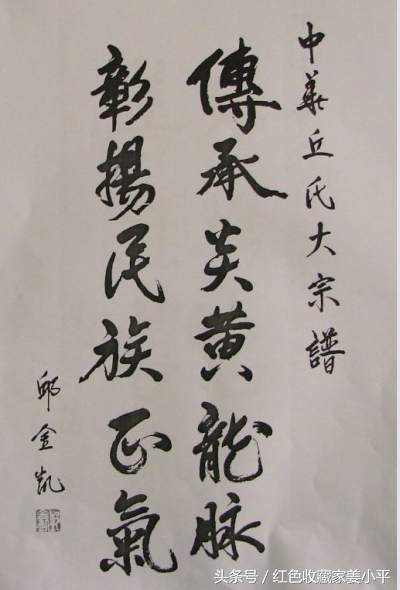 中華丘氏大宗譜
傳承炎黄龍脉
彰揚民族正氣
邱金凱
头条号／红色收藏家姜小平